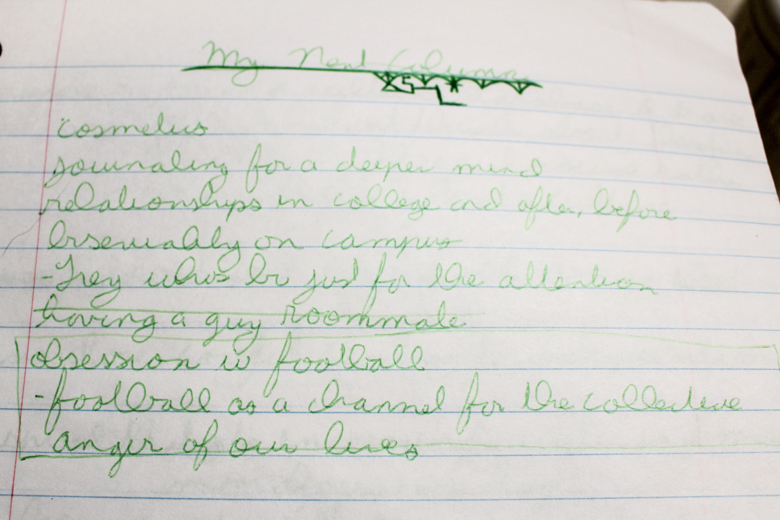 My Next Column
cosmetics
journaling for a deeper mind
relationships in college and after, before
bisexuality on campus
- who's bi just for the attention
having a guy roommate
obsession w football
- football as a channel for the collective
anger of our lives